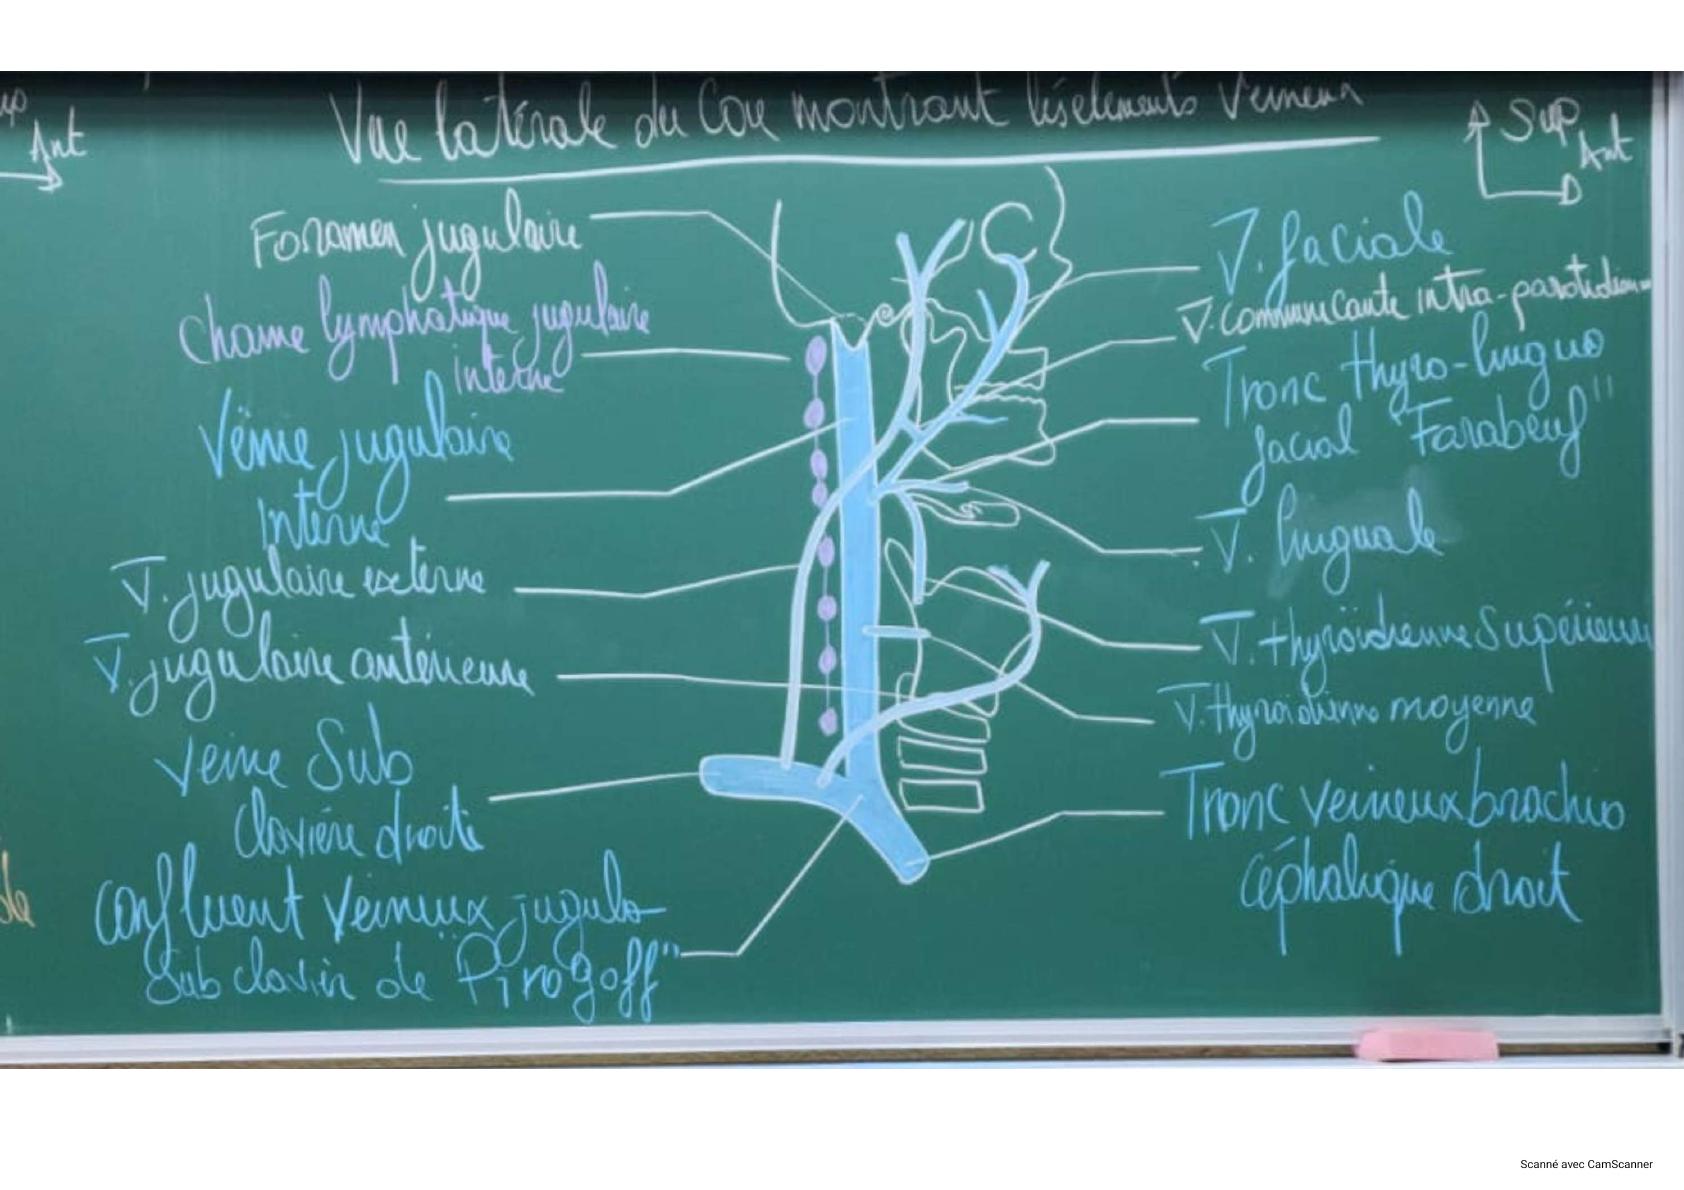 Vue latérale du Cou montrant les éléments Veineux
Sup
Ant
Ant
Foramen jugulaire
Chaine lymphatique jugulaire
interne
Veine jugulaire
Interne
V. jugulaire externe
V. jugulaire antérieure
Veine Sub
Clavière droite
Confluent Veineux jugulo-
Sub clavier de "Pirogoff"
V. faciale
V. Communicante intra-parotidienne
Tronc thyro-linguo
facial "Farabeuf"
V. linguale
V. thyroïdienne Supérieure
V. thyroïdienne moyenne
Tronc Veineux brachio
Céphalique droit
Scanné avec CamScanner